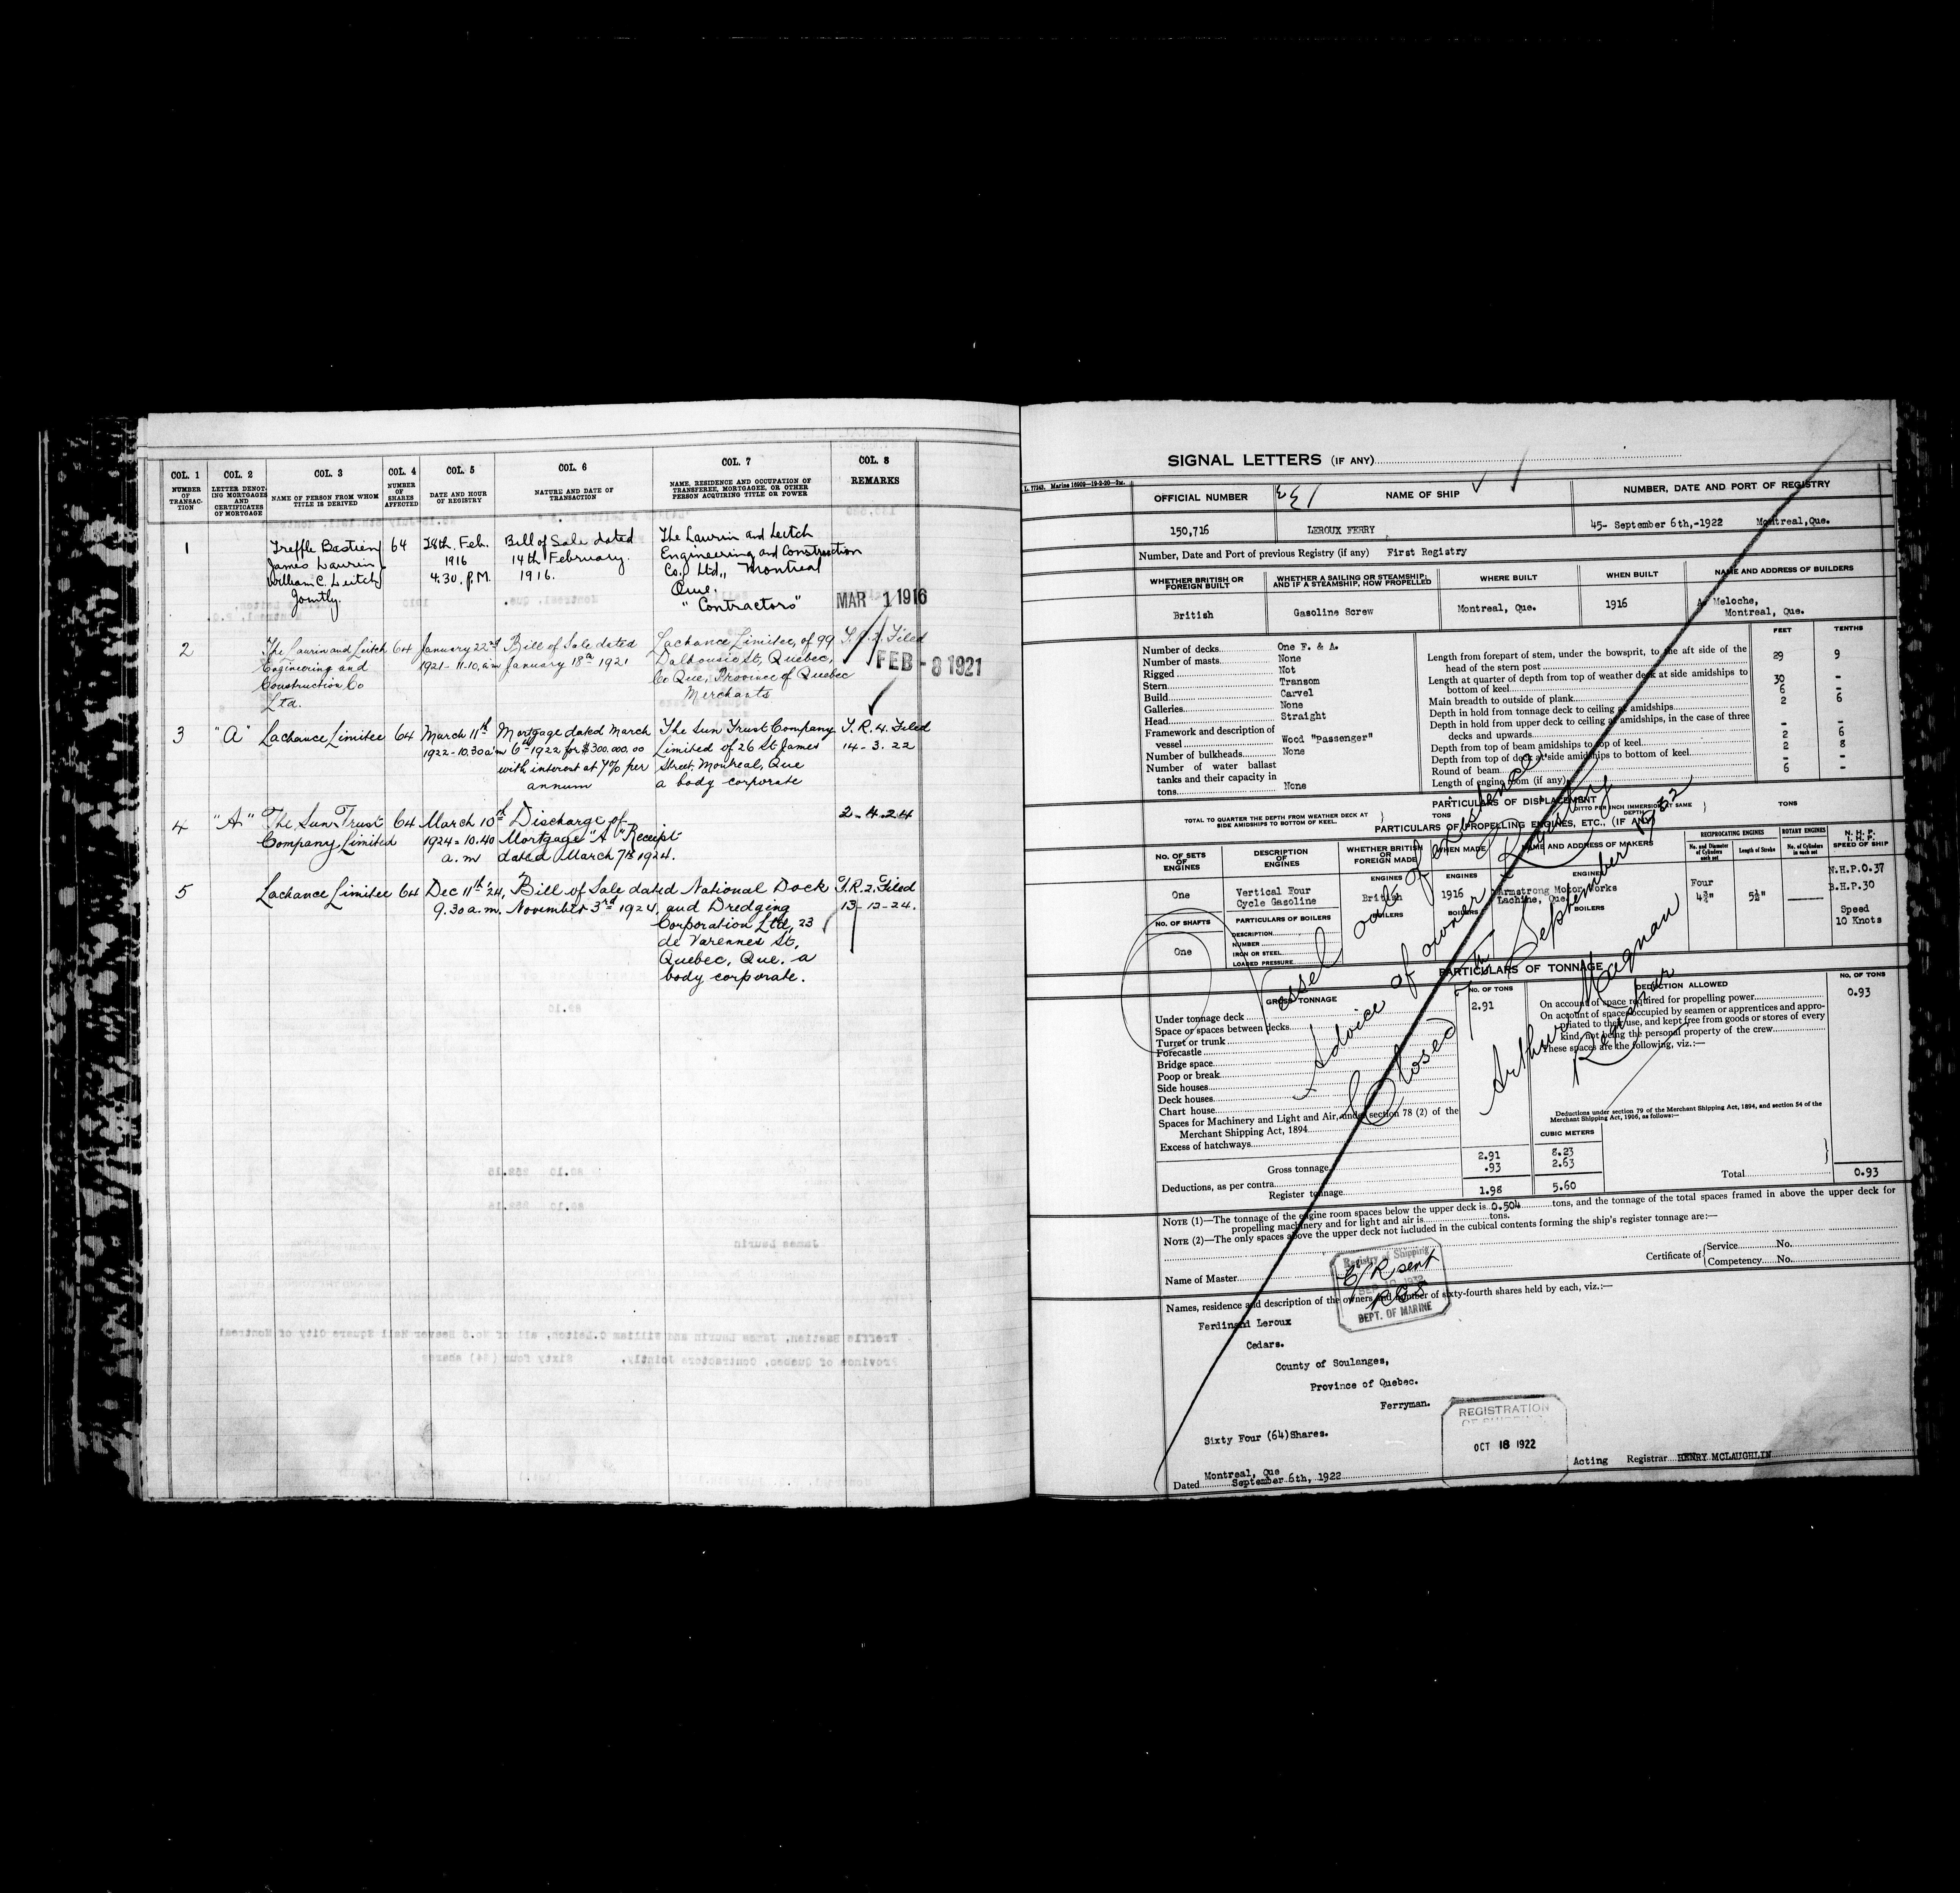 COL. 1 COL. 2 COL. 3 COL. 4 COL. 5 COL. 6 COL. 7 COL. 8
NUMBER OF TRANSAC-TION
LETTER DENOT-ING MORTGAGES AND CERTIFICATES OF MORTGAGE
NAME OF PERSON FROM WHOM TITLE IS DERIVED
NUMBER OF SHARES AFFECTED
DATE AND HOUR OF REGISTRY
NATURE AND DATE OF TRANSACTION
NAME, RESIDENCE AND OCCUPATION OF TRANSFEREE, MORTGAGEE, OR OTHER PERSON ACQUIRING TITLE OR POWER
REMARKS
1 Treffle Bastien 64 28th. Feb. Bill of Sale dated The Laurin and Leitch
James Laurin 1916 14th February. Engineering and Construction
William C. Leitch 4.30. P.M. 1916. Co., Ltd., Montreal
Jointly. Que.
"Contractors" MAR 1 1916
2 The Laurin and Leitch 64 January 22nd Bill of Sale dated Lachance Limitee, of 99 T.R.2. Filed
Engineering and 1921-11.10, a.m January 18th 1921 Dalhousie St, Quebec, FEB - 8 1921
Construction Co Co Que, Province of Quebec
Ltd. Merchants
3 "A" Lachance Limitee 64 March 11th Mortgage dated March The Sun Trust Company T.R.4. Filed
1922-10.30 a.m 6th 1922 for $300.000.00 Limited of 26 St James 14-3.22
with interest at 7% per Street, Montreal, Que
annum a body corporate
4 "A" The Sun Trust 64 March 10th Discharge of 2-4-24
Company Limited 1924-10.40 Mortgage "A" Receipt
a.m dated March 7th 1924.
5 Lachance Limitee 64 Dec 11th '24, Bill of Sale dated National Dock T.R.2. Filed
9.30 a.m. November 3rd 1924. and Dredging 13-12-24.
Corporation Ltd, 23
de Varennes St,
Quebec, Que. a
body corporate.
SIGNAL LETTERS (IF ANY)
L. 77243. Marine 16909-19-2-20-2M.
OFFICIAL NUMBER NAME OF SHIP NUMBER, DATE AND PORT OF REGISTRY
150,716 LEROUX FERRY 45- September 6th,-1922 Montreal,Que.
Number, Date and Port of previous Registry (if any) First Registry
WHETHER BRITISH OR FOREIGN BUILT
WHETHER A SAILING OR STEAMSHIP; AND IF A STEAMSHIP, HOW PROPELLED
WHERE BUILT WHEN BUILT NAME AND ADDRESS OF BUILDERS
British Gasoline Screw Montreal, Que. 1916 A. Meloche,
Montreal, Que.
FEET TENTHS
Number of decks One F. & A.
Number of masts None
Rigged Not
Stern Transom
Build Carvel
Galleries None
Head Straight
Framework and description of
vessel Wood "Passenger"
Number of bulkheads None
Number of water ballast
tanks and their capacity in
tons None
Length from forepart of stem, under the bowsprit, to the aft side of the
head of the stern post 29 9
Length at quarter of depth from top of weather deck at side amidships to
bottom of keel 30 -
Main breadth to outside of plank 6 -
Depth in hold from tonnage deck to ceiling at amidships 2 6
Depth in hold from upper deck to ceiling at amidships, in the case of three
decks and upwards - -
Depth from top of beam amidships to top of keel 2 6
Depth from top of deck at side amidships to bottom of keel 2 8
Round of beam - -
Length of engine room (if any) 6 -
PARTICULARS OF DISPLACEMENT
TOTAL TO QUARTER THE DEPTH FROM WEATHER DECK AT SIDE AMIDSHIPS TO BOTTOM OF KEEL. TONS DITTO PER INCH IMMERSION AT SAME DEPTH TONS
PARTICULARS OF PROPELLING ENGINES, ETC., (IF ANY)
NO. OF SETS OF ENGINES
DESCRIPTION OF ENGINES
WHETHER BRITISH OR FOREIGN MADE
WHEN MADE
NAME AND ADDRESS OF MAKERS
RECIPROCATING ENGINES
No. and Diameter of Cylinders each set
Length of Stroke
ROTARY ENGINES
No. of Cylinders in each set
N. H. P.
I. H. P.
SPEED OF SHIP
ENGINES ENGINES ENGINES
One Vertical Four British 1916 Armstrong Motor Works Four 5½" N.H.P.0.37
Cycle Gasoline Lachine, Que. 4¾" B.H.P.30
NO. OF SHAFTS PARTICULARS OF BOILERS BOILERS BOILERS BOILERS
One DESCRIPTION
NUMBER
IRON OR STEEL
LOADED PRESSURE
Speed
10 Knots
PARTICULARS OF TONNAGE
GROSS TONNAGE NO. OF TONS DEDUCTION ALLOWED NO. OF TONS
Under tonnage deck 2.91
Space or spaces between decks
Turret or trunk
Forecastle
Bridge space
Poop or break
Side houses
Deck houses
Chart house
Spaces for Machinery and Light and Air, under section 78 (2) of the
Merchant Shipping Act, 1894
Excess of hatchways
On account of space required for propelling power 0.93
On account of spaces occupied by seamen or apprentices and appro-
priated to their use, and kept free from goods or stores of every
kind, not being the personal property of the crew
These spaces are the following, viz.:—
Deductions under section 79 of the Merchant Shipping Act, 1894, and section 54 of the
Merchant Shipping Act, 1906, as follows:—
CUBIC METERS
Gross tonnage 2.91 8.23
Deductions, as per contra .93 2.63 Total 0.93
Register tonnage 1.98 5.60
NOTE (1)—The tonnage of the engine room spaces below the upper deck is 0.504 tons, and the tonnage of the total spaces framed in above the upper deck for
propelling machinery and for light and air is tons.
NOTE (2)—The only spaces above the upper deck not included in the cubical contents forming the ship's register tonnage are:—
Name of Master Certificate of Service No.
Competency No.
Names, residence and description of the owners and number of sixty-fourth shares held by each, viz.:—
Ferdinand Leroux
Cedars.
County of Soulanges,
Province of Quebec.
Ferryman.
Sixty Four (64)Shares.
Montreal, Que
Dated September 6th, 1922
Acting Registrar HENRY MCLAUGHLIN
Vessel out of existence.
Advice of owner
Registry
Closed 7th September 1932
Arthur Magnan
Registrar
Registry of Shipping
C/R sent
DEPT. OF MARINE
REGISTRATION
OF SHIPPING
OCT 18 1922